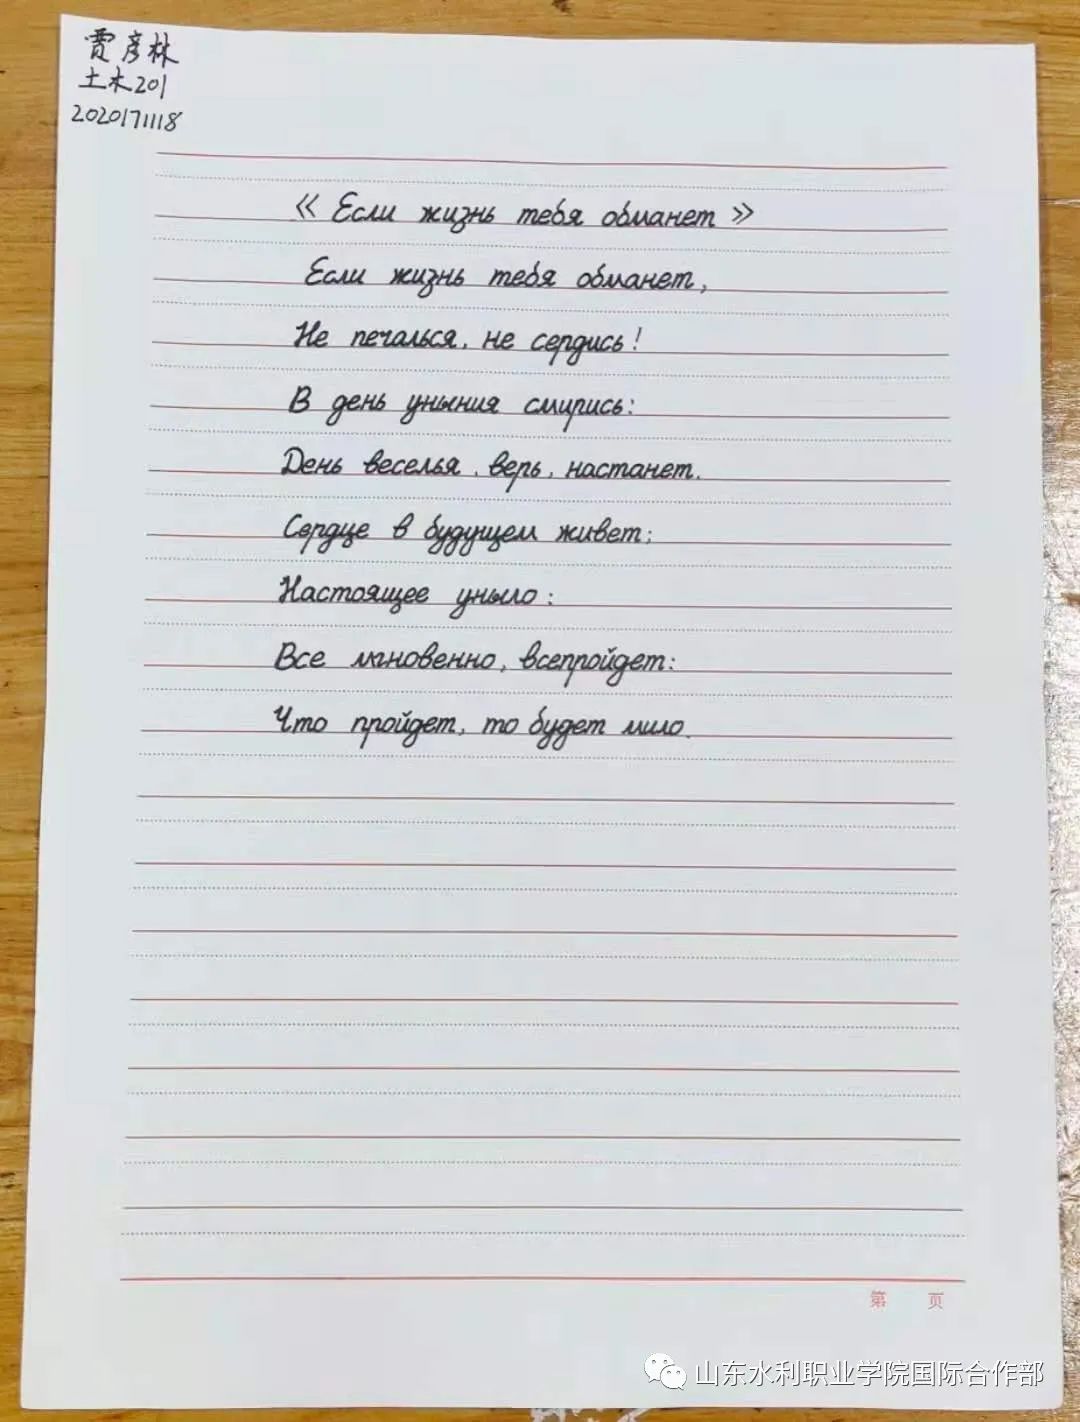 贾彦林
土木201
2020171118
《 Если жизнь тебя обманет 》
Если жизнь тебя обманет,
Не печалься, не сердись!
В день уныния смирись:
День веселья, верь, настанет.
Сердце в будущем живет;
Настоящее уныло:
Все мгновенно, всепройдет:
Что пройдет, то будет мило.
第 页
山东水利职业学院国际合作部